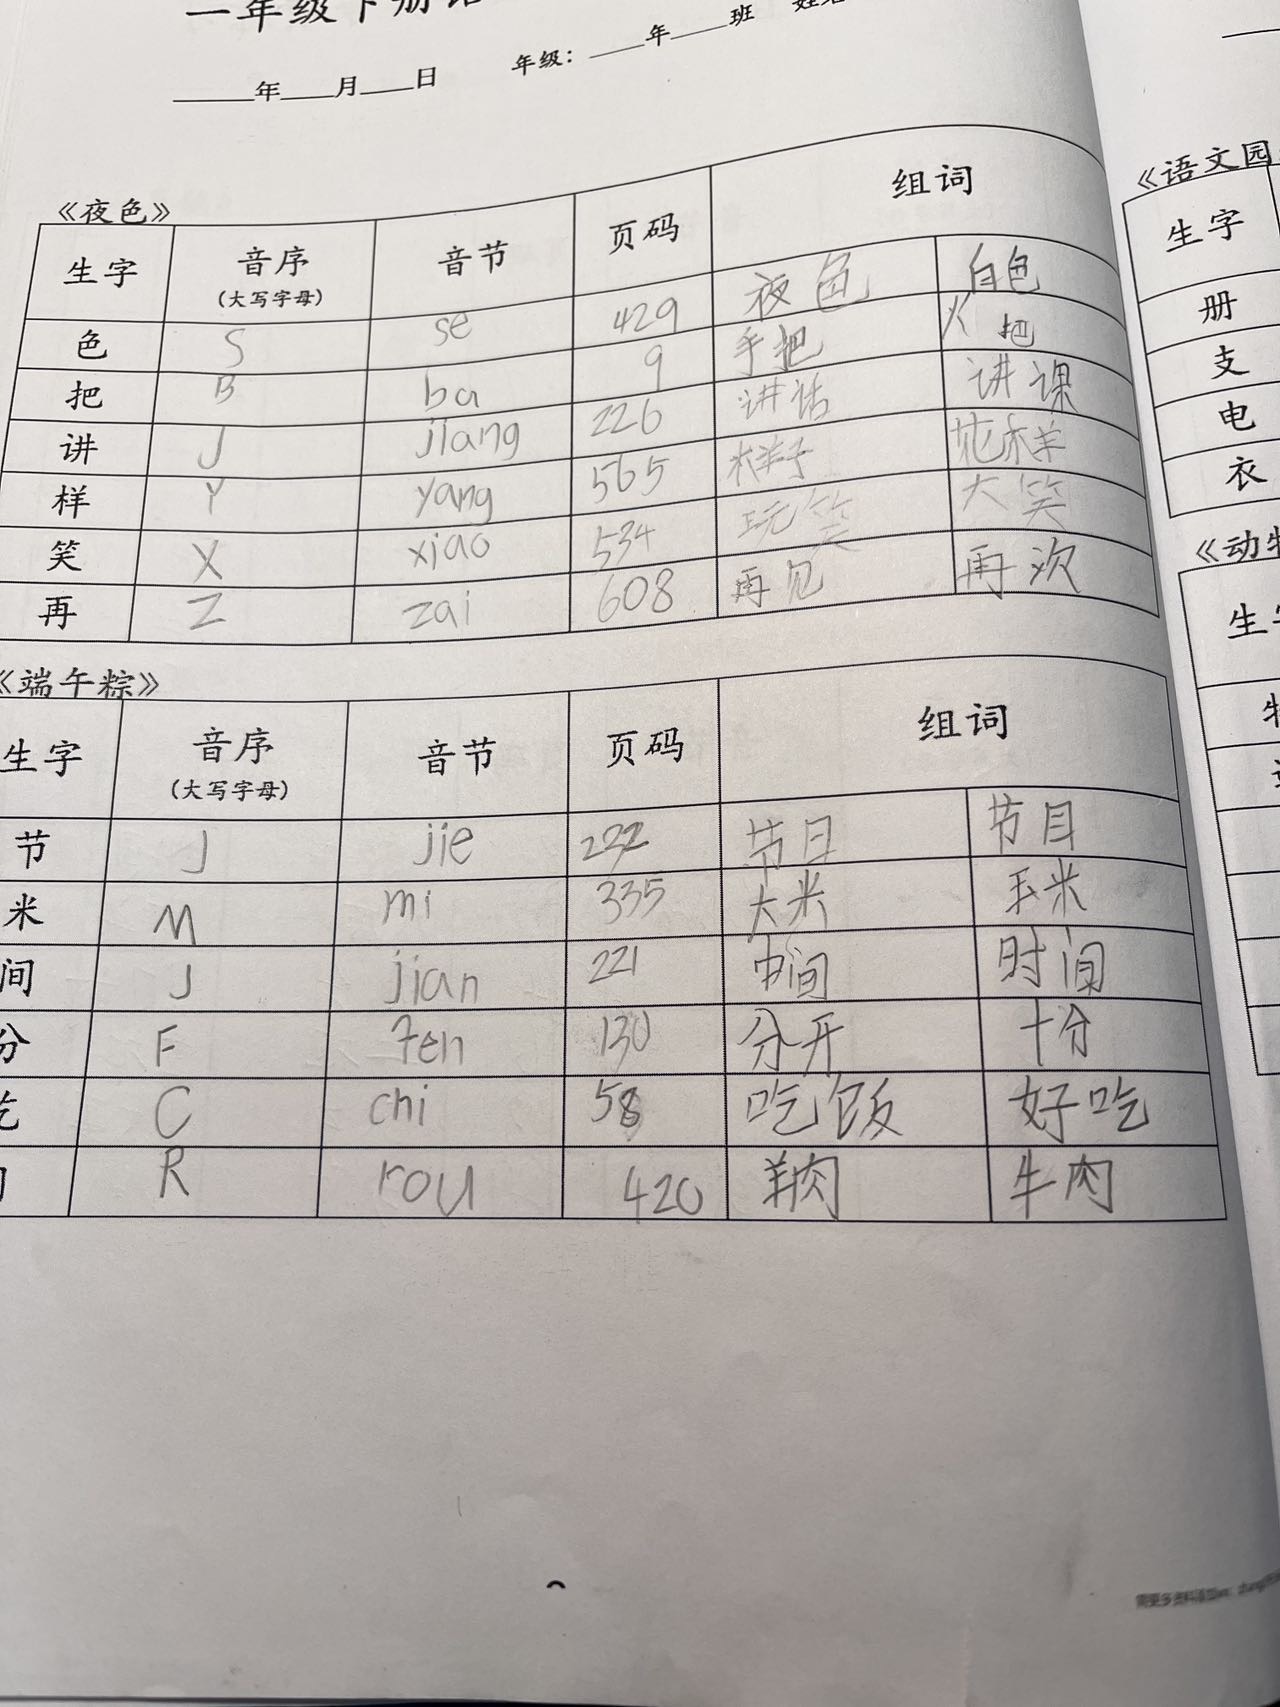 一年级下册
____年____月____日 年级：____年____班
《夜色》
生字 音序（大写字母） 音节 页码 组词
色 S se 429 夜色 白色
把 B ba 9 手把 火把
讲 J jiang 226 讲话 讲课
样 Y yang 565 样子 花样
笑 X xiao 534 玩笑 大笑
再 Z zai 608 再见 再次
《端午粽》
生字 音序（大写字母） 音节 页码 组词
节 J jie 232 节日 节目
米 M mi 335 大米 玉米
间 J jian 221 中间 时间
分 F fen 130 分开 十分
吃 C chi 58 吃饭 好吃
R rou 420 羊肉 牛肉
《语文园
生字
册
支
电
衣
《动物
生字